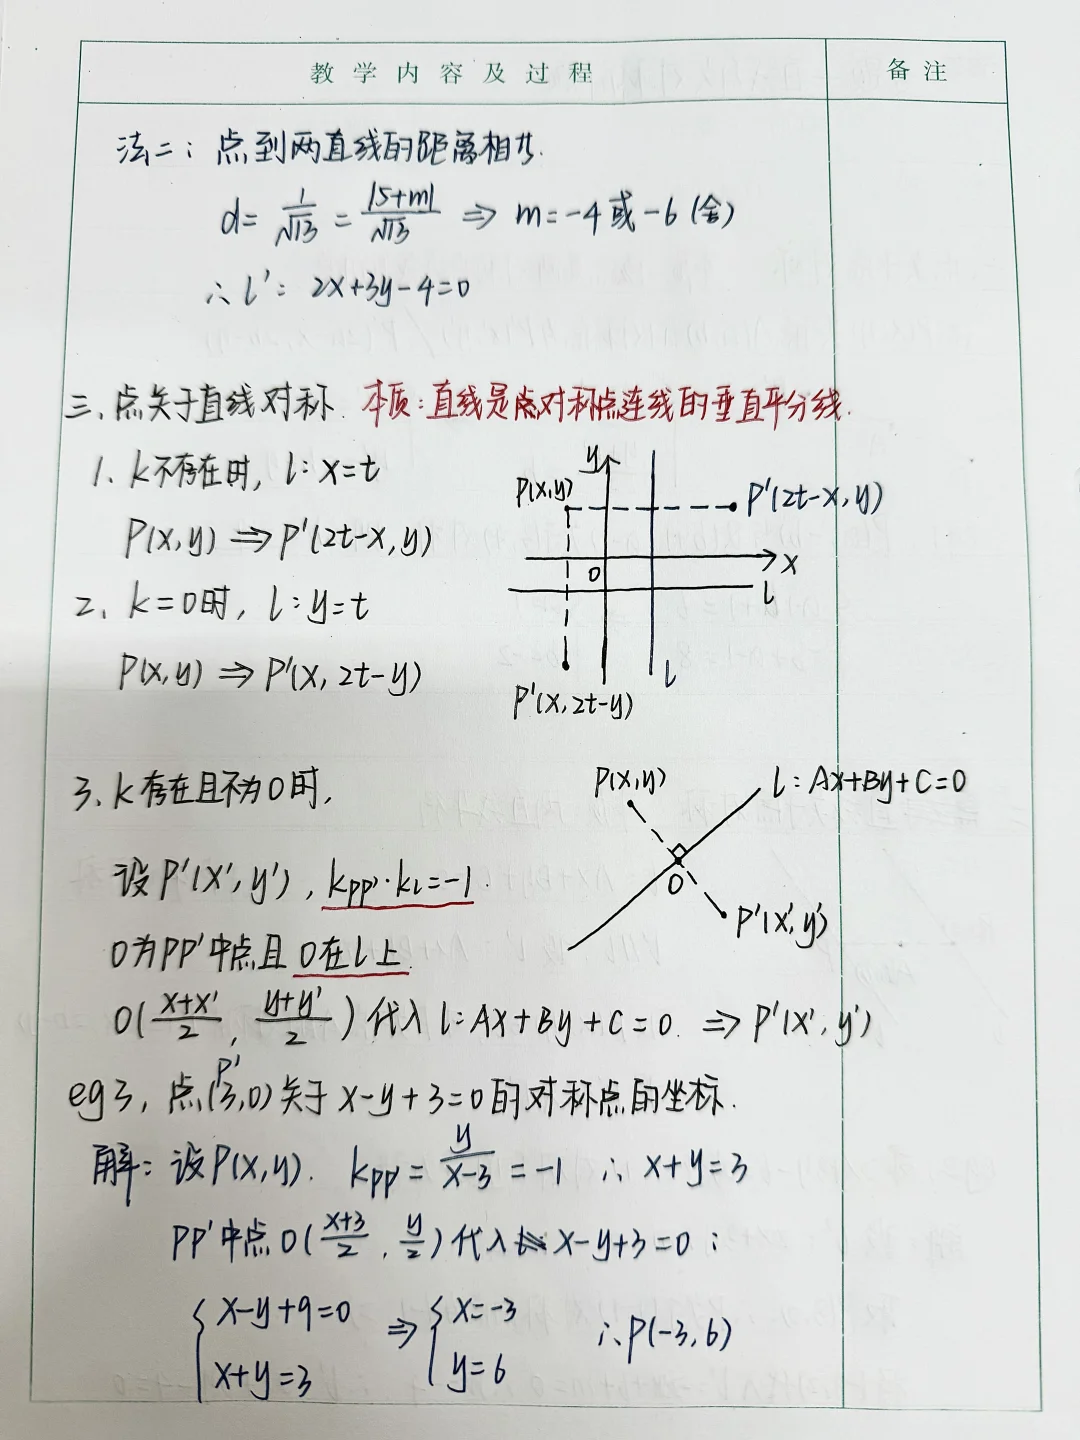 教学内容及过程 备注
法二：点到两直线的距离相等.
d= 1/√13 = |5+m|/√13 ⇒ m=-4或-6(舍)
∴ l': 2x+3y-4=0
三、点关于直线对称. 本质：直线是点对称点连线的垂直平分线.
1、k不存在时, l: x=t
P(x,y) ⇒ P'(2t-x, y)
2、k=0时, l: y=t
P(x,y) ⇒ P'(x, 2t-y)
y
P(x,y) P'(2t-x, y)
O x
l
l
P'(x, 2t-y)
3、k存在且不为0时,
P(x,y) l: Ax+By+C=0
O
P'(x',y')
设P'(x',y'), kpp'·kl=-1.
O为PP'中点且O在l上.
O((x+x')/2, (y+y')/2) 代入 l: Ax+By+C=0. ⇒ P'(x',y')
P'
eg3, 点(3,0)关于x-y+3=0的对称点的坐标.
解: 设P(x,y). kpp' = y/(x-3) = -1 ∴ x+y=3
PP'中点O((x+3)/2, y/2) 代入 x-y+3=0:
{x-y+9=0 ⇒ {x=-3 ∴P(-3,6)
{x+y=3 {y=6